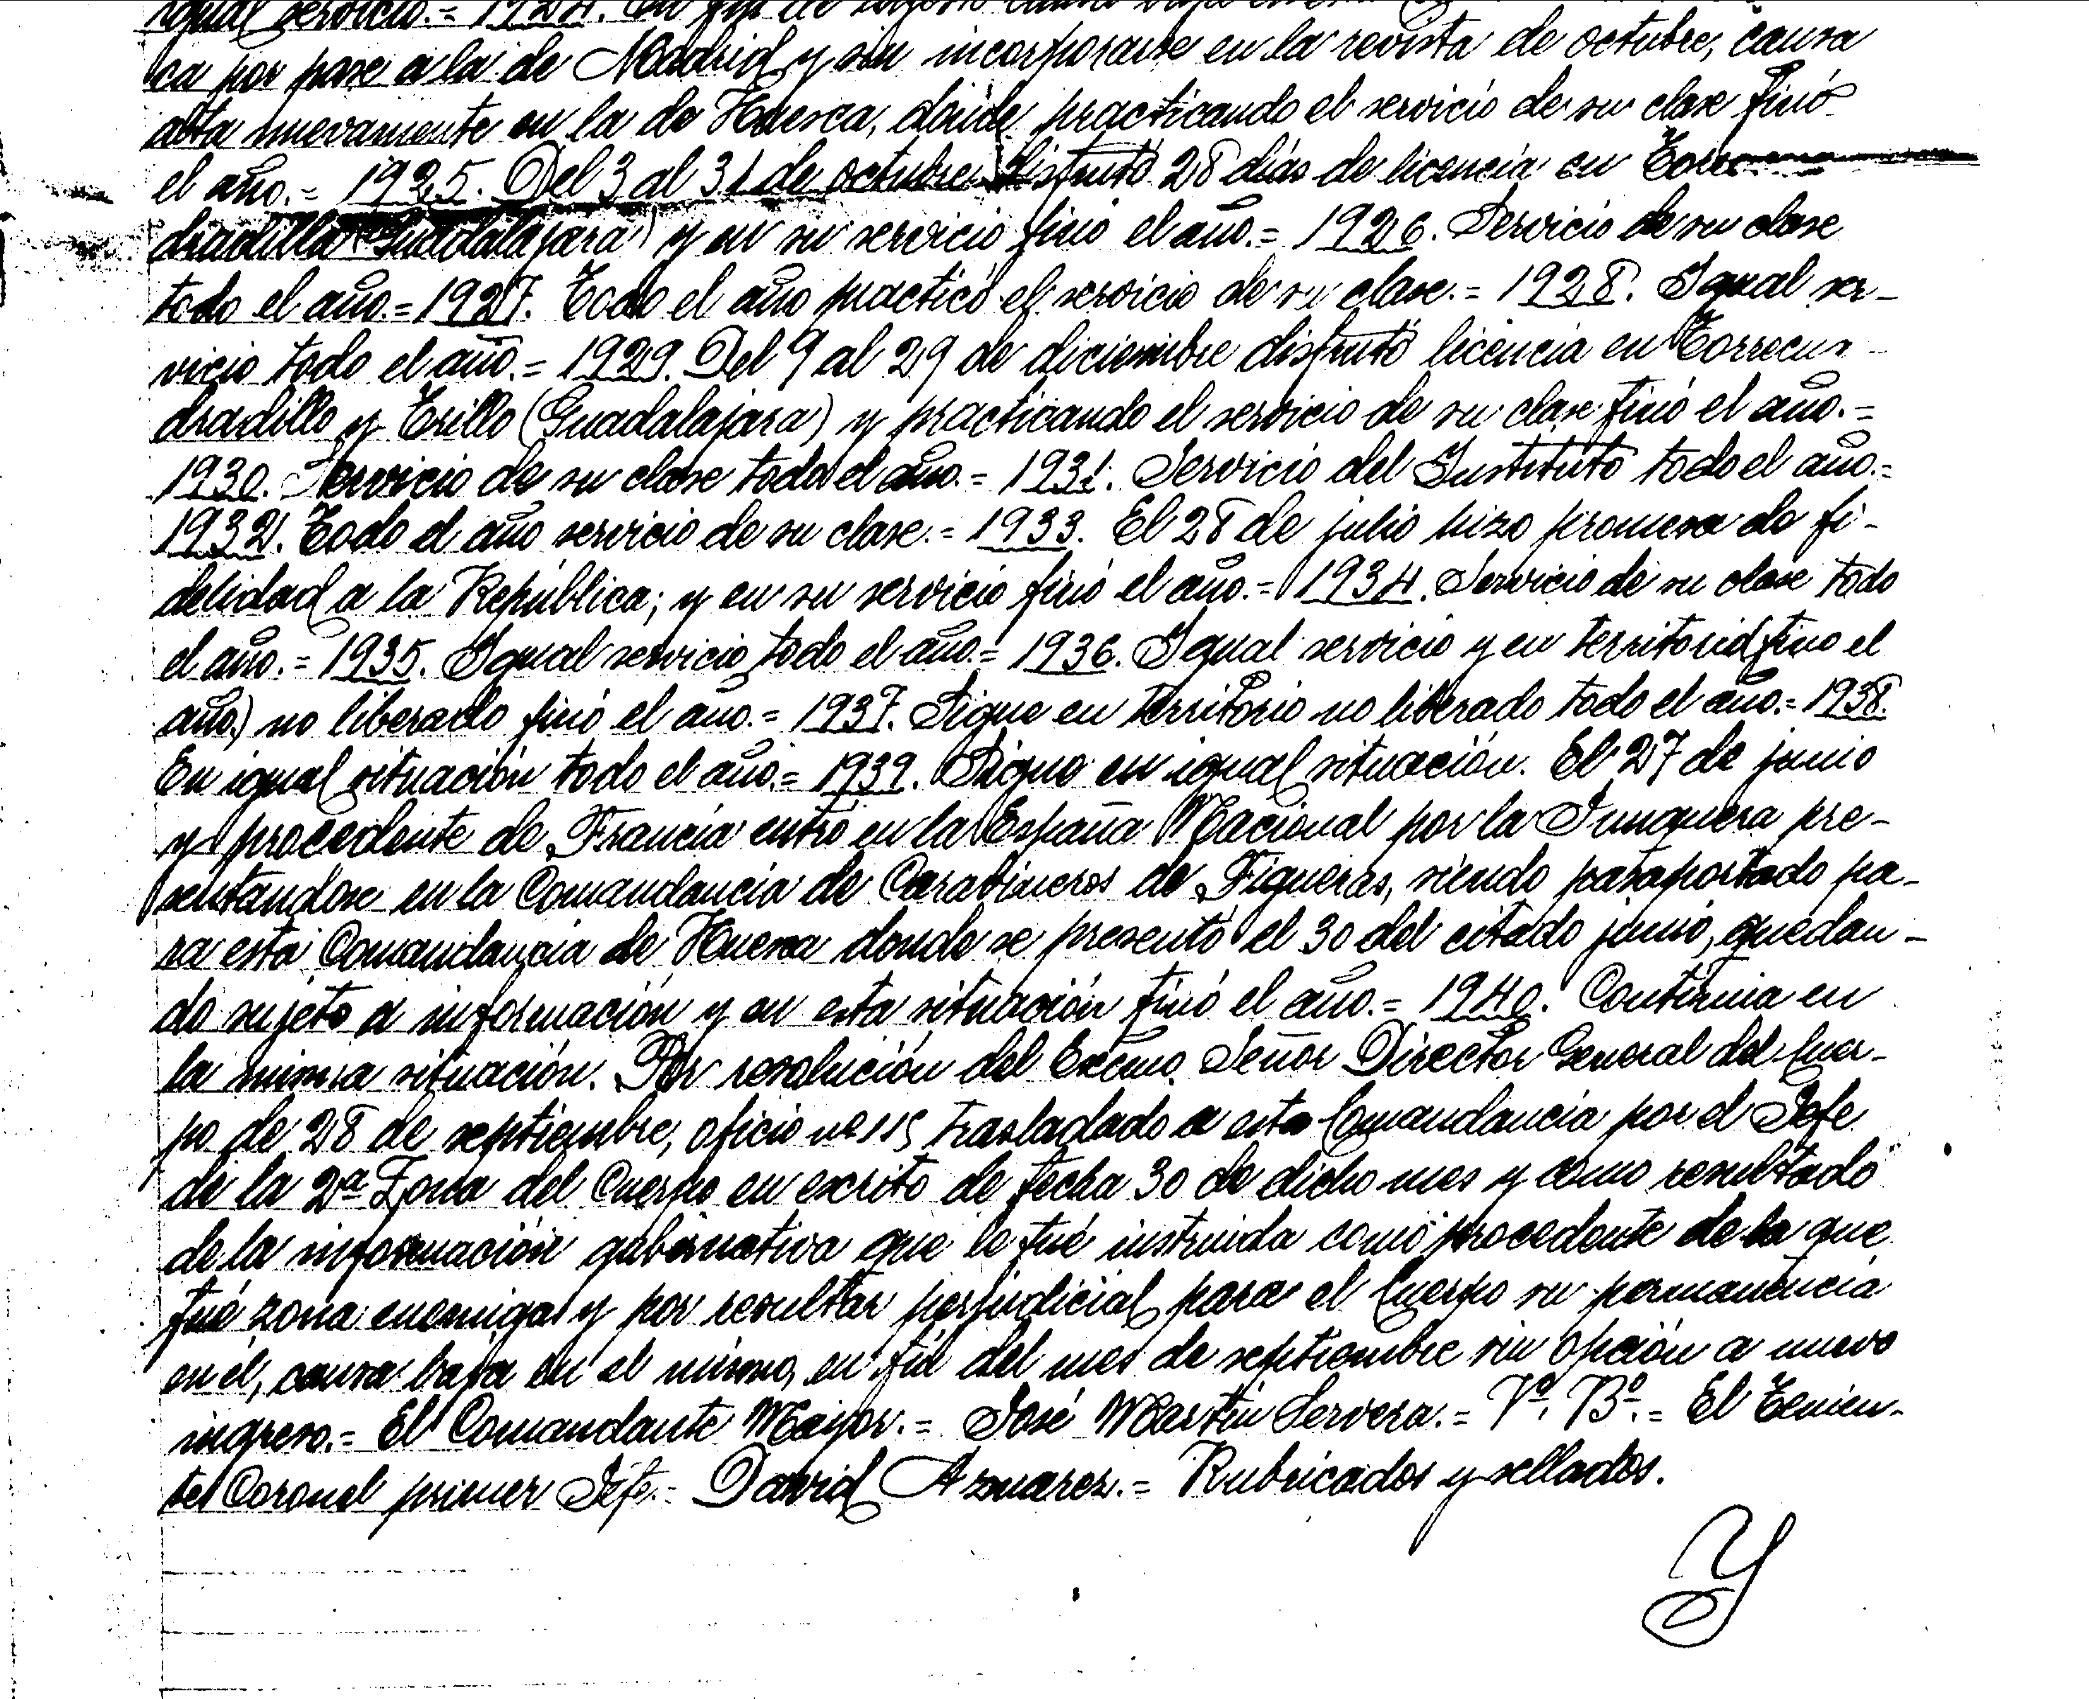 igual servicio.= 1924. En fin de agosto causa baja en esta
ca por pase a la de Madrid y sin incorporarse en la revista de octubre, causa
alta nuevamente en la de Huesca, donde practicando el servicio de su clase finó
el año.= 1925. Del 3 al 31 de octubre disfrutó 28 días de licencia en
dradilla (Guadalajara) y en su servicio finó el año.= 1926. Servicio de su clase
todo el año.= 1927. Todo el año practicó el servicio de su clase.= 1928. Igual ser-
vicio todo el año.= 1929. Del 9 al 29 de diciembre disfrutó licencia en Torrecua-
dradillo y Trillo (Guadalajara) y practicando el servicio de su clase finó el año.=
1930. Servicio de su clase todo el año.= 1931. Servicio del Instituto todo el año.=
1932. Todo el año servicio de su clase.= 1933. El 28 de julio hizo promesa de fi-
delidad a la República; y en su servicio finó el año.= 1934. Servicio de su clase todo
el año.= 1935. Igual servicio todo el año.= 1936. Igual servicio y en territorio (fino el
año) no liberado finó el año.= 1937. Sigue en territorio no liberado todo el año.= 1938.
En igual situación todo el año.= 1939. Sigue en igual situación. El 27 de junio
y procedente de Francia entró en la España Nacional por la Junquera pre-
sentandose en la Comandancia de Carabineros de Figueras, siendo pasaportado pa-
ra esta Comandancia de Huesca donde se presentó el 30 del citado junio, quedan-
do sujeto a información y en esta situación finó el año.= 1940. Continua en
la misma situación. Por resolución del Excmo. Señor Director General del Cuer-
po de 28 de septiembre, oficio nº 115 trasladado a esta Comandancia por el Jefe
de la 2ª Zona del Cuerpo en escrito de fecha 30 de dicho mes y como resultado
de la información gubernativa que le fué instruida como procedente de la que
fué zona enemiga y por resultar perjudicial para el Cuerpo su permanencia
en él, causa baja en el mismo, en fin del mes de septiembre sin opción a nuevo
ingreso.= El Comandante Mayor.= José Martín Servera.= Vº. Bº.= El Tenien-
te Coronel primer Jefe.= David Aznarez.= Rubricados y sellados.